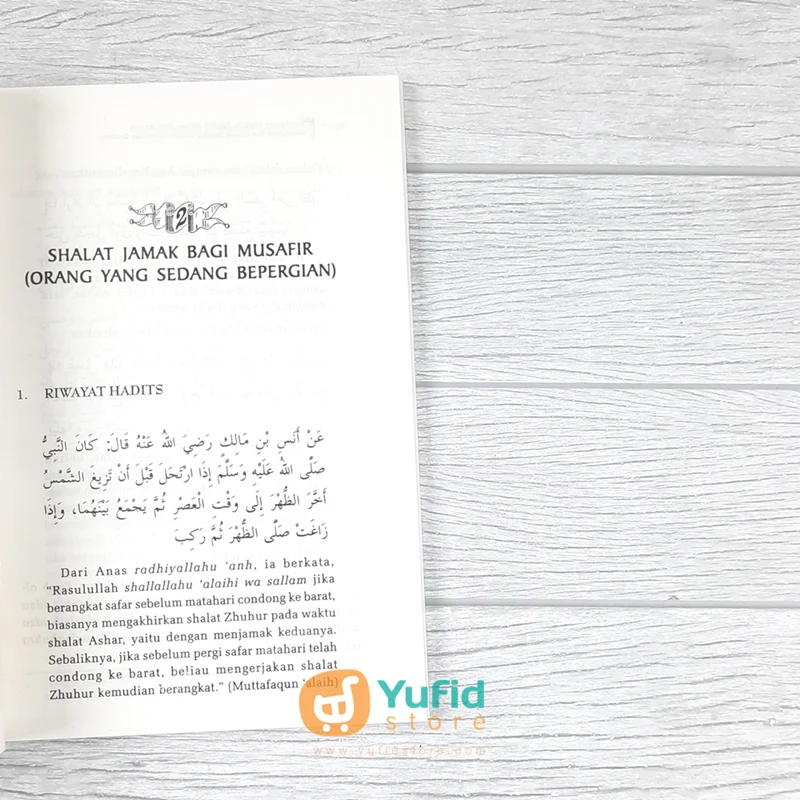 2
SHALAT JAMAK BAGI MUSAFIR
(ORANG YANG SEDANG BEPERGIAN)
1. RIWAYAT HADITS
عَنْ أَنَسِ بْنِ مَالِكٍ رَضِيَ اللهُ عَنْهُ قَالَ: كَانَ النَّبِيُّ
صَلَّى اللهُ عَلَيْهِ وَسَلَّمَ إِذَا ارْتَحَلَ قَبْلَ أَنْ تَزِيغَ الشَّمْسُ
أَخَّرَ الظُّهْرَ إِلَى وَقْتِ الْعَصْرِ ثُمَّ يَجْمَعُ بَيْنَهُمَا، وَإِذَا
زَاغَتْ صَلَّى الظُّهْرَ ثُمَّ رَكِبَ
Dari Anas radhiyallahu ‘anh, ia berkata,
“Rasulullah shallallahu ‘alaihi wa sallam jika
berangkat safar sebelum matahari condong ke barat,
biasanya mengakhirkan shalat Zhuhur pada waktu
shalat Ashar, yaitu dengan menjamak keduanya.
Sebaliknya, jika sebelum pergi safar matahari telah
condong ke barat, beliau mengerjakan shalat
Zhuhur kemudian berangkat.” (Muttafaqun ‘alaih)
Yufid
store
www.yufidstore.com